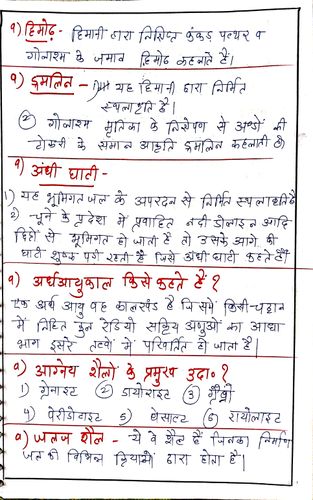 १) हिमोढ़ - हिमानी द्वारा निक्षिप्त कंकड़ पत्थर व
गोलाश्म के जमाव हिमोढ़ कहलाते है।
१) ड्रमलिन - ① यह हिमानी द्वारा निर्मित
स्थलाकृति है।
② गोलाश्म मृतिका के निक्षेपण से अण्डों की
टोकरी के समान आकृति ड्रमलिन कहलाती है।
१) अंधी घाटी -
1) यह भूमिगत जल के अपरदन से निर्मित स्थलाकृति है
2) चूने के प्रदेश में प्रवाहित नदी डोलाइन आदि
छिद्रों से भूमिगत हो जाती है तो उसके आगे की
घाटी शुष्क पड़ी रहती है जिसे अंधी घाटी कहते है।
१) अर्धआयुकाल किसे कहते है?
एक अर्ध आयु वह कालखंड है जिसमें किसी चट्टान
में निहित कुल रेडियो सक्रिय अणुओं का आधा
भाग दूसरे तत्वों में परिवर्तित हो जाता है।
१) आग्नेय शैलों के प्रमुख उदा०?
① ग्रेनाइट ② डायोराइट ③ गैब्रो
4) पेरीडोटाइट 5) बेसाल्ट ⑥ रायोलाइट
१) जलज शैल - ये वे शैल हैं जिनका निर्माण
जल की विभिन्न क्रियाओं द्वारा होता है।